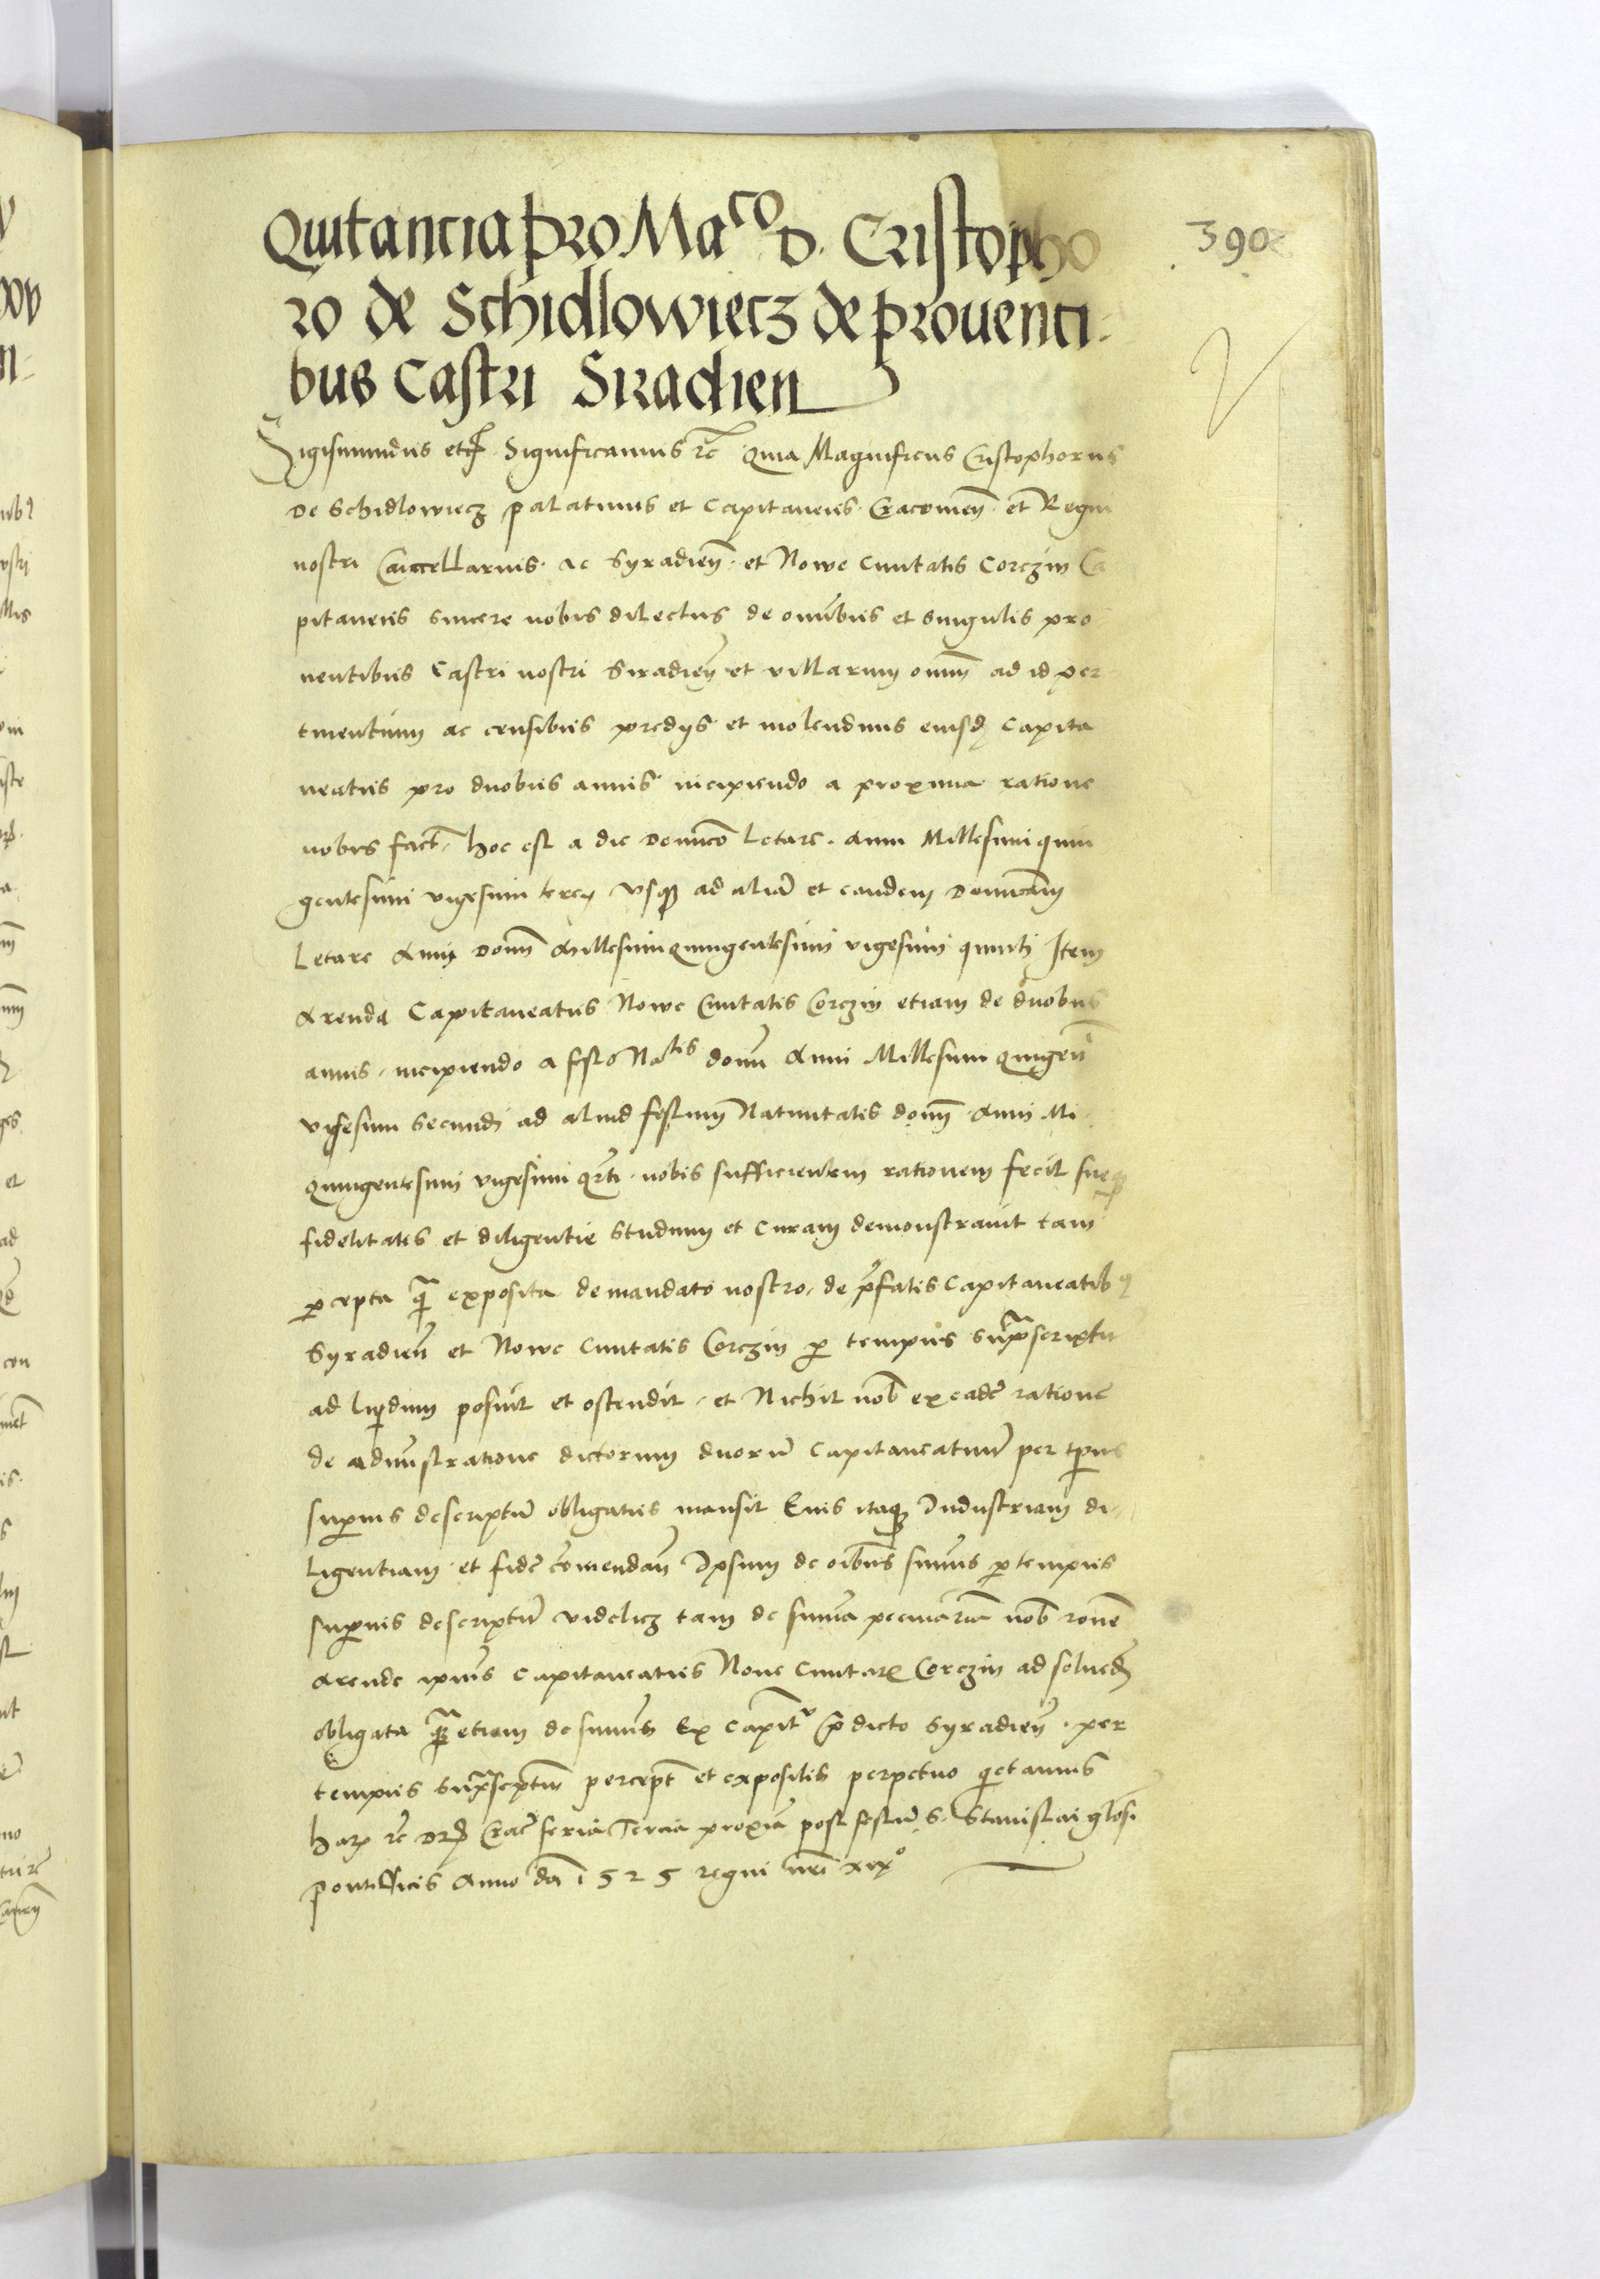 Quitancia pro Ma^co D. Cristopho
390
ro de Schidlowiecz de prouenti-
bus Castri Siradien
Sigismundus etc Significamus rc Quia Magnificus Cristophorus
De Schidlowiecz palatinus et Capitaneus Cracouien et Regni
nostri Cancellarius ac Syradien et Nowe Ciuitatis Corczin Ca
pitaneus sincere nobis dilectus de omnibus et singulis pro
uentibus Castri nostri Siradien et villarum omnium ad id per
tinentium ac censibus predys et molendinis eiusdem Capita
neatus pro duobus annis incipiendo a proxima ratione
nobis fact hoc est a die Dominico Letare Anni Millesimi quin
gentesimi vigesimi tercij vsque ad aliam et eandem Dominicam
Letare Anni Domini Millesimi quingentesimi vigesimi quinti Item
Arenda Capitaneatus Nowe Ciuitatis Corczin etiam de duobus
annis incipiendo a festo Na^tis domini Anni Millesimi quingen
vigesimi secundi ad aliud festum Natiuitatis domini Anni Mi
quingentesimi vigesimi quarti nobis sufficientem rationem fecit sueque
fidelitatis et diligentie studium et curam demonstrauit tam
percepta quam exposita de mandato nostro de prefatis Capitaneatibus
Syradien et Nowe Ciuitatis Corczin per tempus suprascriptum
ad liquidum posuit et ostendit et Nichil nob ex eadem ratione
de administratione dictorum duorum Capitaneatuum per tempus
superius descriptum obligatus mansit Eius itaque Industriam di-
ligentiam et fidem comendan Ipsum de omnibus summis per tempus
superius descriptum videlicz tam de summa pecuniaria nob ratione
Arende ipsius Capitaneatus Noue Ciuitatis Corczin ad soluend
obligata quam etiam de summis Ex Capit predicto Syradien per
tempus suprascriptum percept et expositis perpetuo quietamus
Harum rc Dat Crac feria Tercia proxima post festum S. Stanislai gloriosi
pontificis Anno do 1525 regni nri xix^o